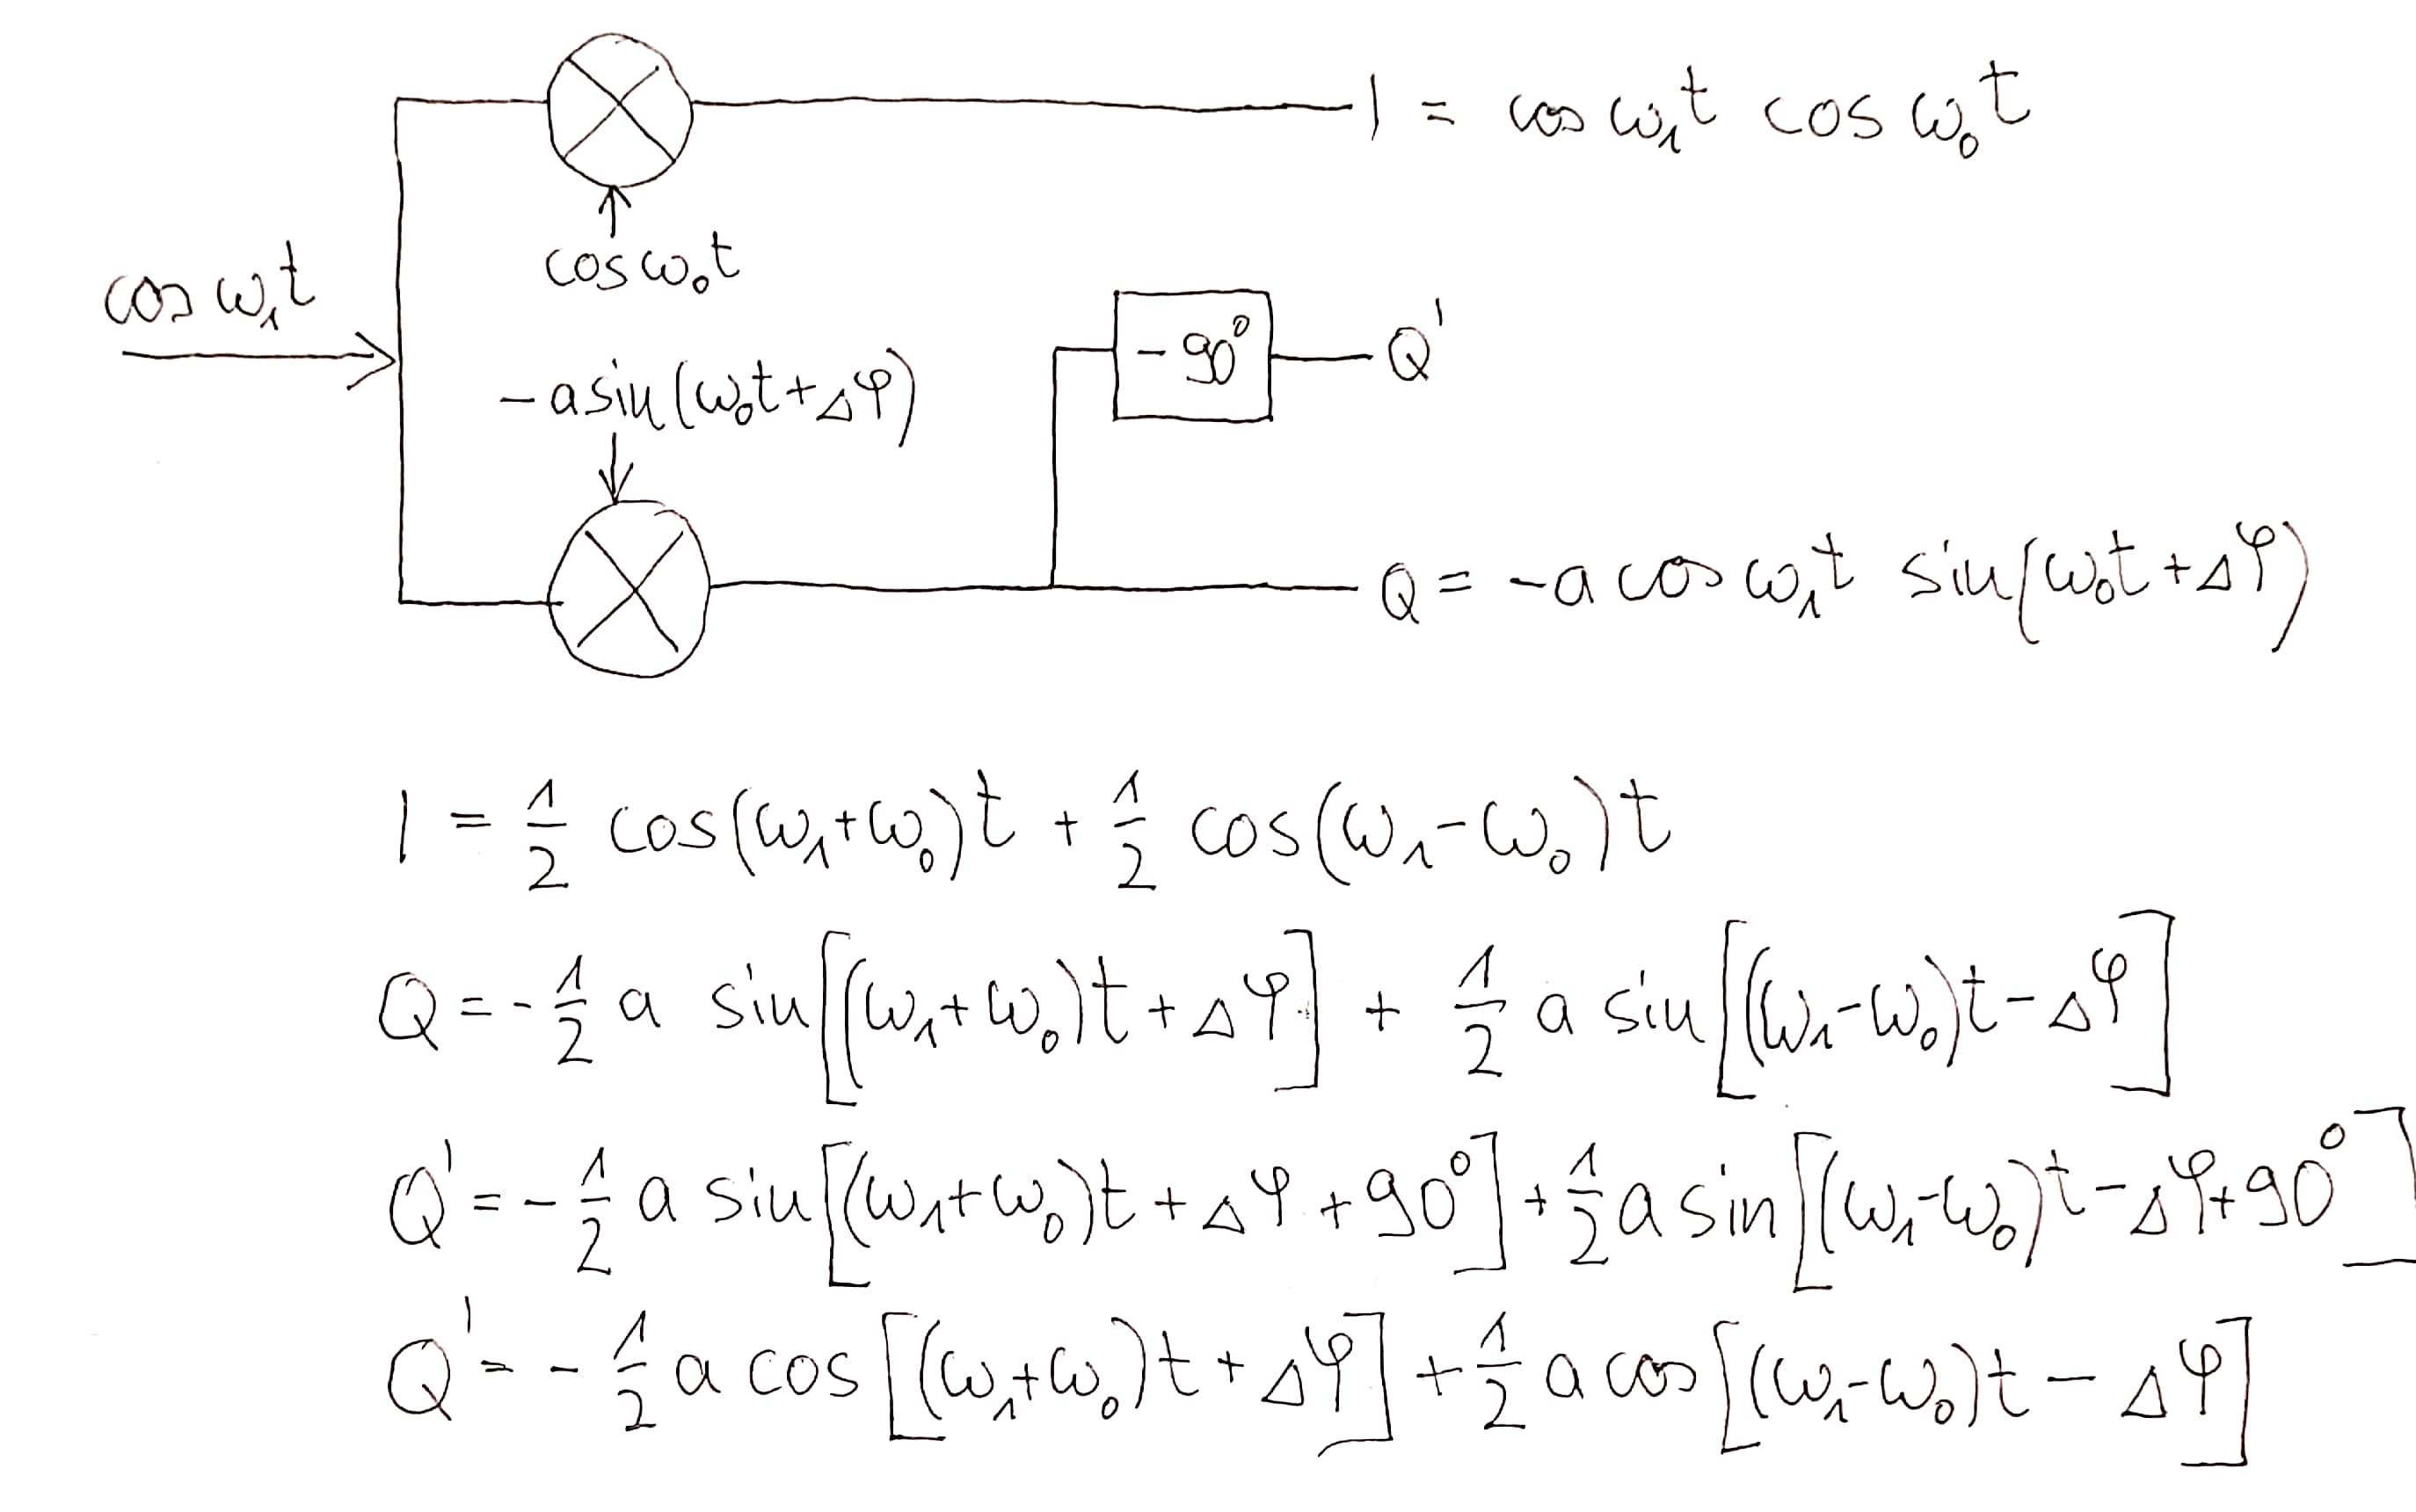 I = cos ω₁t cos ω₀t
cos ω₀t
cos ω₁t
-90° Q'
-a sin(ω₀t+Δφ)
Q = -a cos ω₁t sin(ω₀t+Δφ)
I = 1/2 cos(ω₁+ω₀)t + 1/2 cos(ω₁-ω₀)t
Q = -1/2 a sin[(ω₁+ω₀)t+Δφ] + 1/2 a sin[(ω₁-ω₀)t-Δφ]
Q' = -1/2 a sin[(ω₁+ω₀)t+Δφ+90°] + 1/2 a sin[(ω₁-ω₀)t-Δφ+90°]
Q' = -1/2 a cos[(ω₁+ω₀)t+Δφ] + 1/2 a cos[(ω₁-ω₀)t-Δφ]